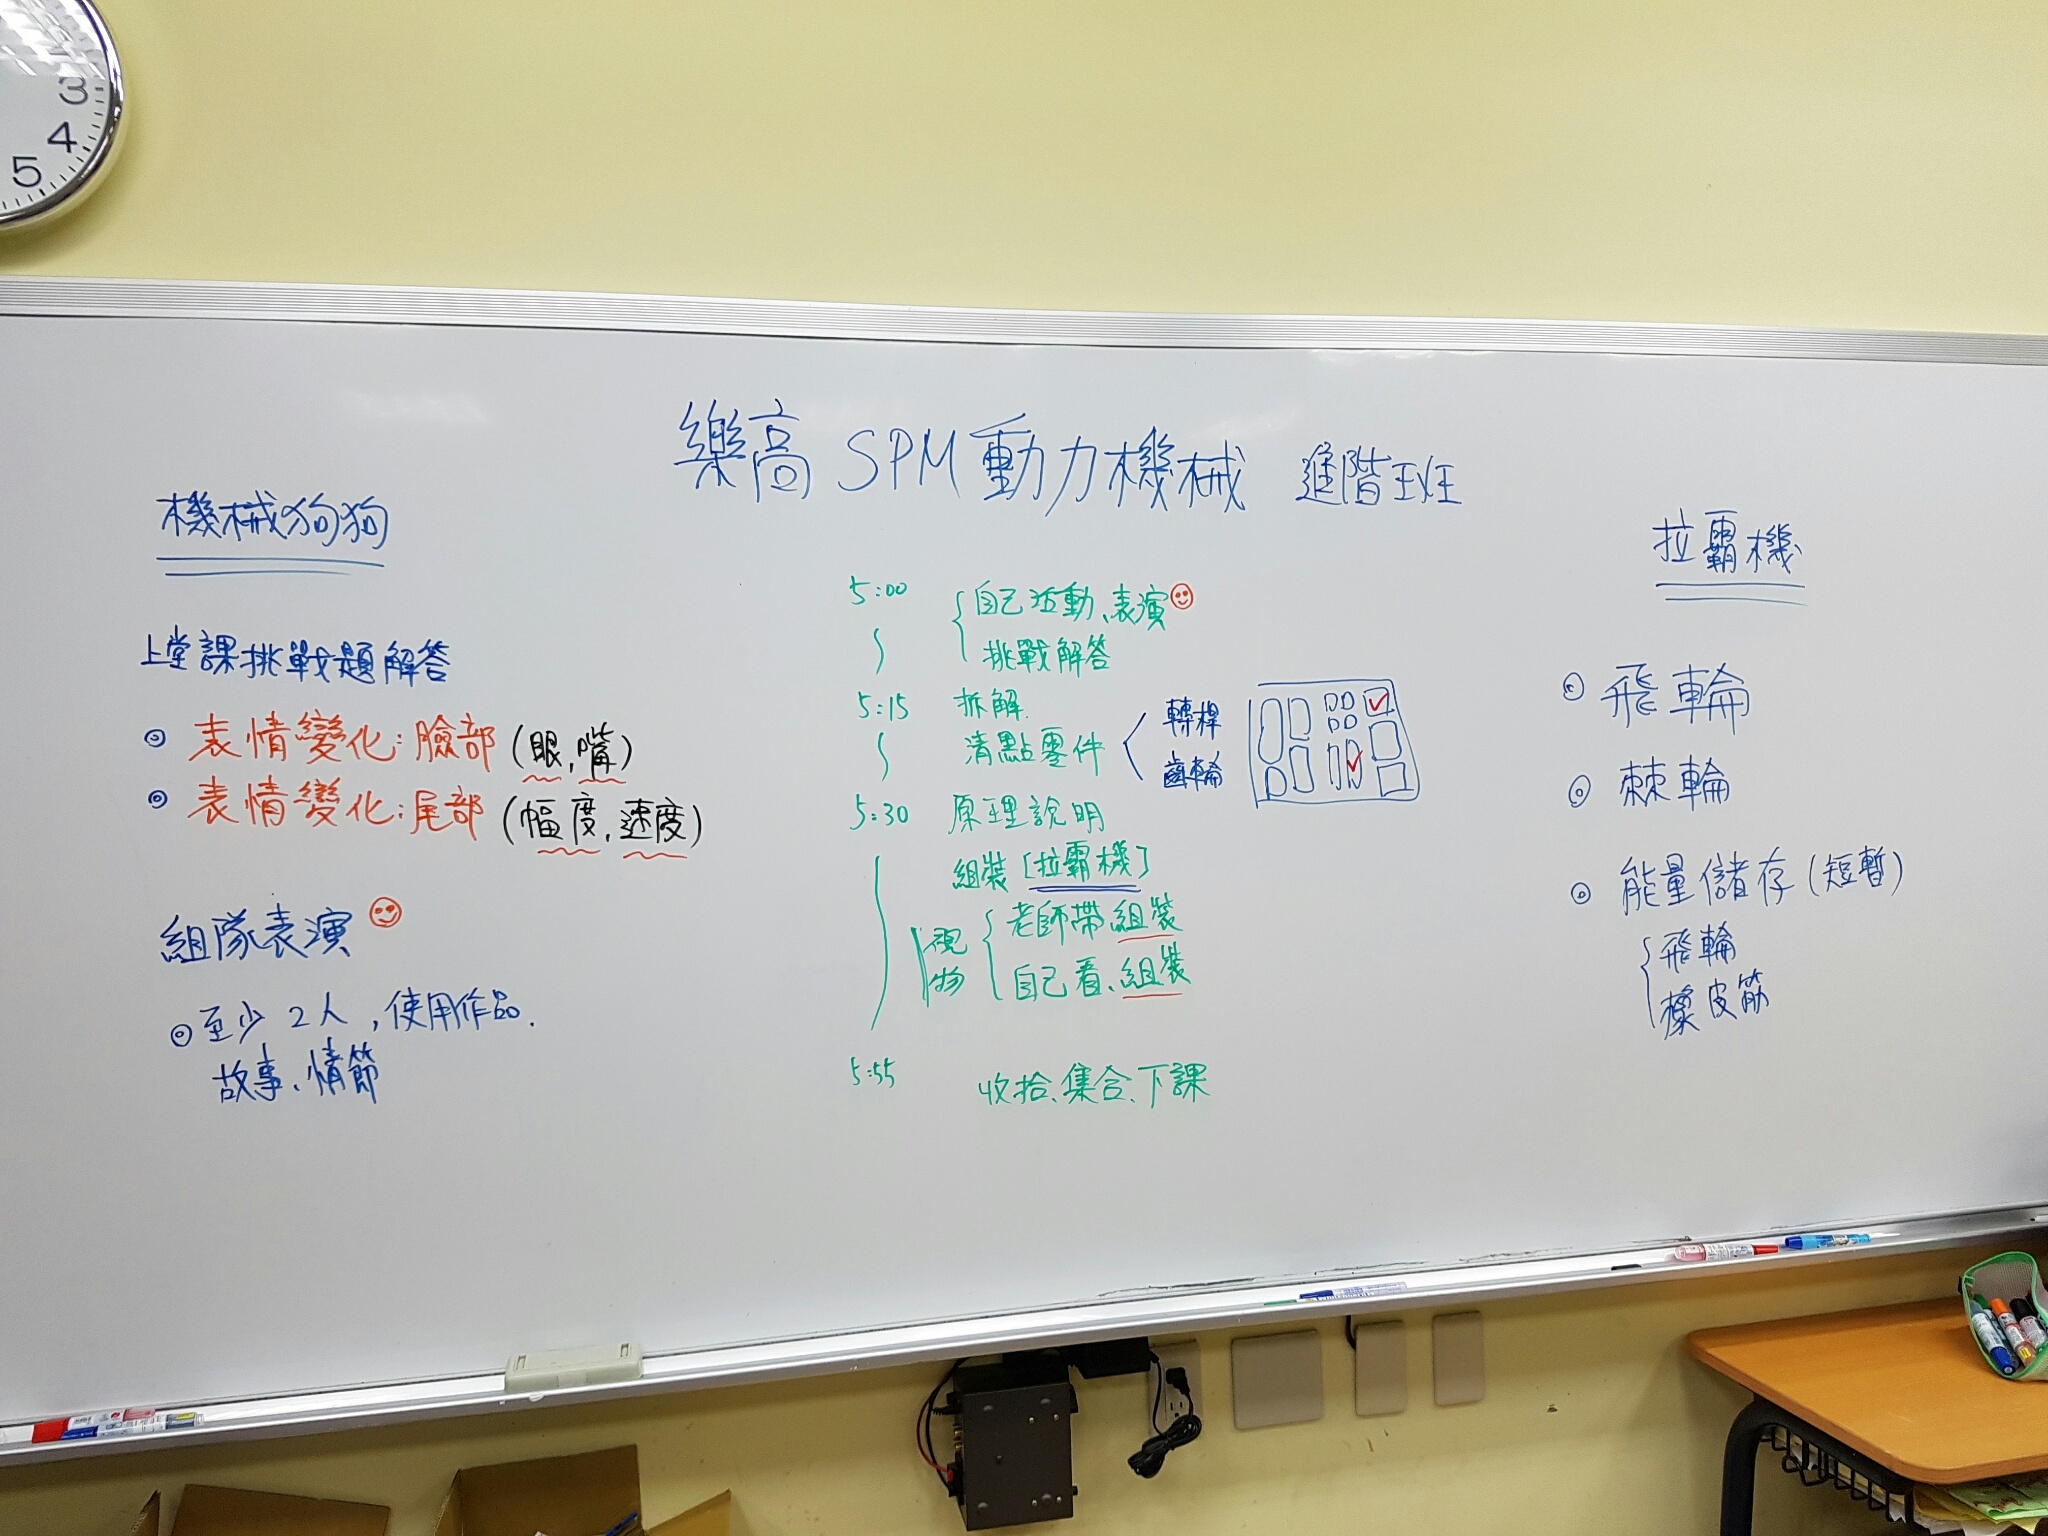 3
4
5
樂高 SPM 動力機械 進階班
機械狗狗
上堂課挑戰題解答
◎ 表情變化:臉部(眼,嘴)
◎ 表情變化:尾部(幅度,速度)
組隊表演
◎ 至少 2人,使用作品.
故事、情節
5:00 自己活動、表演
挑戰解答
5:15 拆解
清點零件
轉桿
齒輪
5:30 原理說明
組裝[拉霸機]
老師帶組裝
自己看、組裝
5:55 收拾、集合、下課
拉霸機
◎ 飛輪
◎ 棘輪
◎ 能量儲存(短暫)
飛輪
橡皮筋